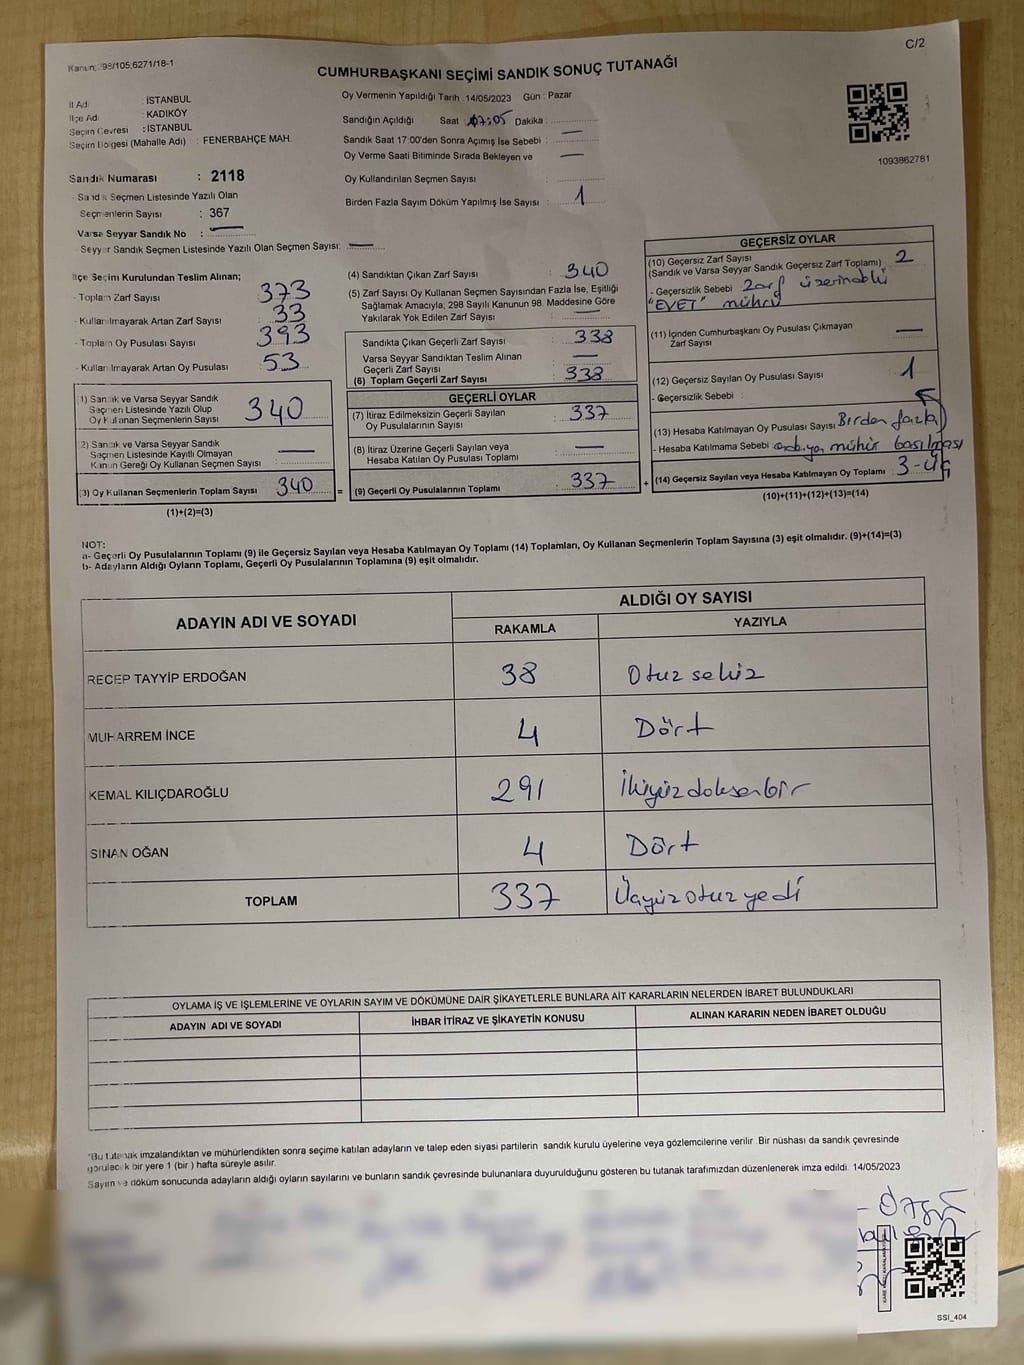 C/2
Kanun; 298/105,6271/18-1
CUMHURBAŞKANI SEÇİMİ SANDIK SONUÇ TUTANAĞI
İl Adı : İSTANBUL
İlçe Adı : KADIKÖY
Seçim Çevresi : İSTANBUL
Seçim Bölgesi (Mahalle Adı) : FENERBAHÇE MAH.
Sandık Numarası : 2118
- Sandık Seçmen Listesinde Yazılı Olan
Seçmenlerin Sayısı : 367
Varsa Seyyar Sandık No :
- Seyyar Sandık Seçmen Listesinde Yazılı Olan Seçmen Sayısı:
Oy Vermenin Yapıldığı Tarih :14/05/2023 Gün : Pazar
Sandığın Açıldığı Saat : 17:05 Dakika :
Sandık Saat 17:00'den Sonra Açımış İse Sebebi :
Oy Verme Saati Bitiminde Sırada Bekleyen ve
Oy Kullandırılan Seçmen Sayısı :
Birden Fazla Sayım Döküm Yapılmış İse Sayısı : 1
1093862781
İlçe Seçim Kurulundan Teslim Alınan;
- Toplam Zarf Sayısı : 373
- Kullanılmayarak Artan Zarf Sayısı : 33
- Toplam Oy Pusulası Sayısı : 393
- Kullanılmayarak Artan Oy Pusulası : 53
1) Sandık ve Varsa Seyyar Sandık
Seçmen Listesinde Yazılı Olup
Oy Kullanan Seçmenlerin Sayısı : 340
2) Sandık ve Varsa Seyyar Sandık
Seçmen Listesinde Kayıtlı Olmayan
Kanun Gereği Oy Kullanan Seçmen Sayısı :
(3) Oy Kullanan Seçmenlerin Toplam Sayısı : 340
(1)+(2)=(3)
(4) Sandıktan Çıkan Zarf Sayısı : 340
(5) Zarf Sayısı Oy Kullanan Seçmen Sayısından Fazla İse, Eşitliği
Sağlamak Amacıyla; 298 Sayılı Kanunun 98. Maddesine Göre
Yakılarak Yok Edilen Zarf Sayısı :
Sandıkta Çıkan Geçerli Zarf Sayısı : 338
Varsa Seyyar Sandıktan Teslim Alınan
Geçerli Zarf Sayısı :
(6) Toplam Geçerli Zarf Sayısı : 338
GEÇERLİ OYLAR
(7) İtiraz Edilmeksizin Geçerli Sayılan
Oy Pusulalarının Sayısı : 337
(8) İtiraz Üzerine Geçerli Sayılan veya
Hesaba Katılan Oy Pusulası Toplamı :
= (9) Geçerli Oy Pusulalarının Toplamı : 337 +
GEÇERSİZ OYLAR
(10) Geçersiz Zarf Sayısı
(Sandık ve Varsa Seyyar Sandık Geçersiz Zarf Toplamı) : 2
- Geçersizlik Sebebi : zarf üzerinde
"EVET" mührü
(11) İçinden Cumhurbaşkanı Oy Pusulası Çıkmayan
Zarf Sayısı :
(12) Geçersiz Sayılan Oy Pusulası Sayısı : 1
- Geçersizlik Sebebi :
(13) Hesaba Katılmayan Oy Pusulası Sayısı : Birden fazla
- Hesaba Katılmama Sebebi : mühür basılması
(14) Geçersiz Sayılan veya Hesaba Katılmayan Oy Toplamı : 3-üç
(10)+(11)+(12)+(13)=(14)
NOT:
a- Geçerli Oy Pusulalarının Toplamı (9) ile Geçersiz Sayılan veya Hesaba Katılmayan Oy Toplamı (14) Toplamları, Oy Kullanan Seçmenlerin Toplam Sayısına (3) eşit olmalıdır. (9)+(14)=(3)
b- Adayların Aldığı Oyların Toplamı, Geçerli Oy Pusulalarının Toplamına (9) eşit olmalıdır.
ADAYIN ADI VE SOYADI
ALDIĞI OY SAYISI
RAKAMLA YAZIYLA
RECEP TAYYİP ERDOĞAN 38 Otuz sekiz
MUHARREM İNCE 4 Dört
KEMAL KILIÇDAROĞLU 291 İkiyüzdoksanbir
SİNAN OĞAN 4 Dört
TOPLAM 337 Üçyüzotuzyedi
OYLAMA İŞ VE İŞLEMLERINE VE OYLARIN SAYIM VE DÖKÜMÜNE DAİR ŞİKAYETLERLE BUNLARA AİT KARARLARIN NELERDEN İBARET BULUNDUKLARI
ADAYIN ADI VE SOYADI İHBAR İTİRAZ VE ŞİKAYETİN KONUSU ALINAN KARARIN NEDEN İBARET OLDUĞU
"Bu tutanak imzalandıktan ve mühürlendikten sonra seçime katılan adayların ve talep eden siyasi partilerin sandık kurulu üyelerine veya gözlemcilerine verilir. Bir nüshası da sandık çevresinde
görülecek bir yere 1 (bir ) hafta süreyle asılır.
Sayım ve döküm sonucunda adayların aldığı oyların sayılarını ve bunların sandık çevresinde bulunanlara duyurulduğunu gösteren bu tutanak tarafımızdan düzenlenerek imza edildi. 14/05/2023
SSI_404